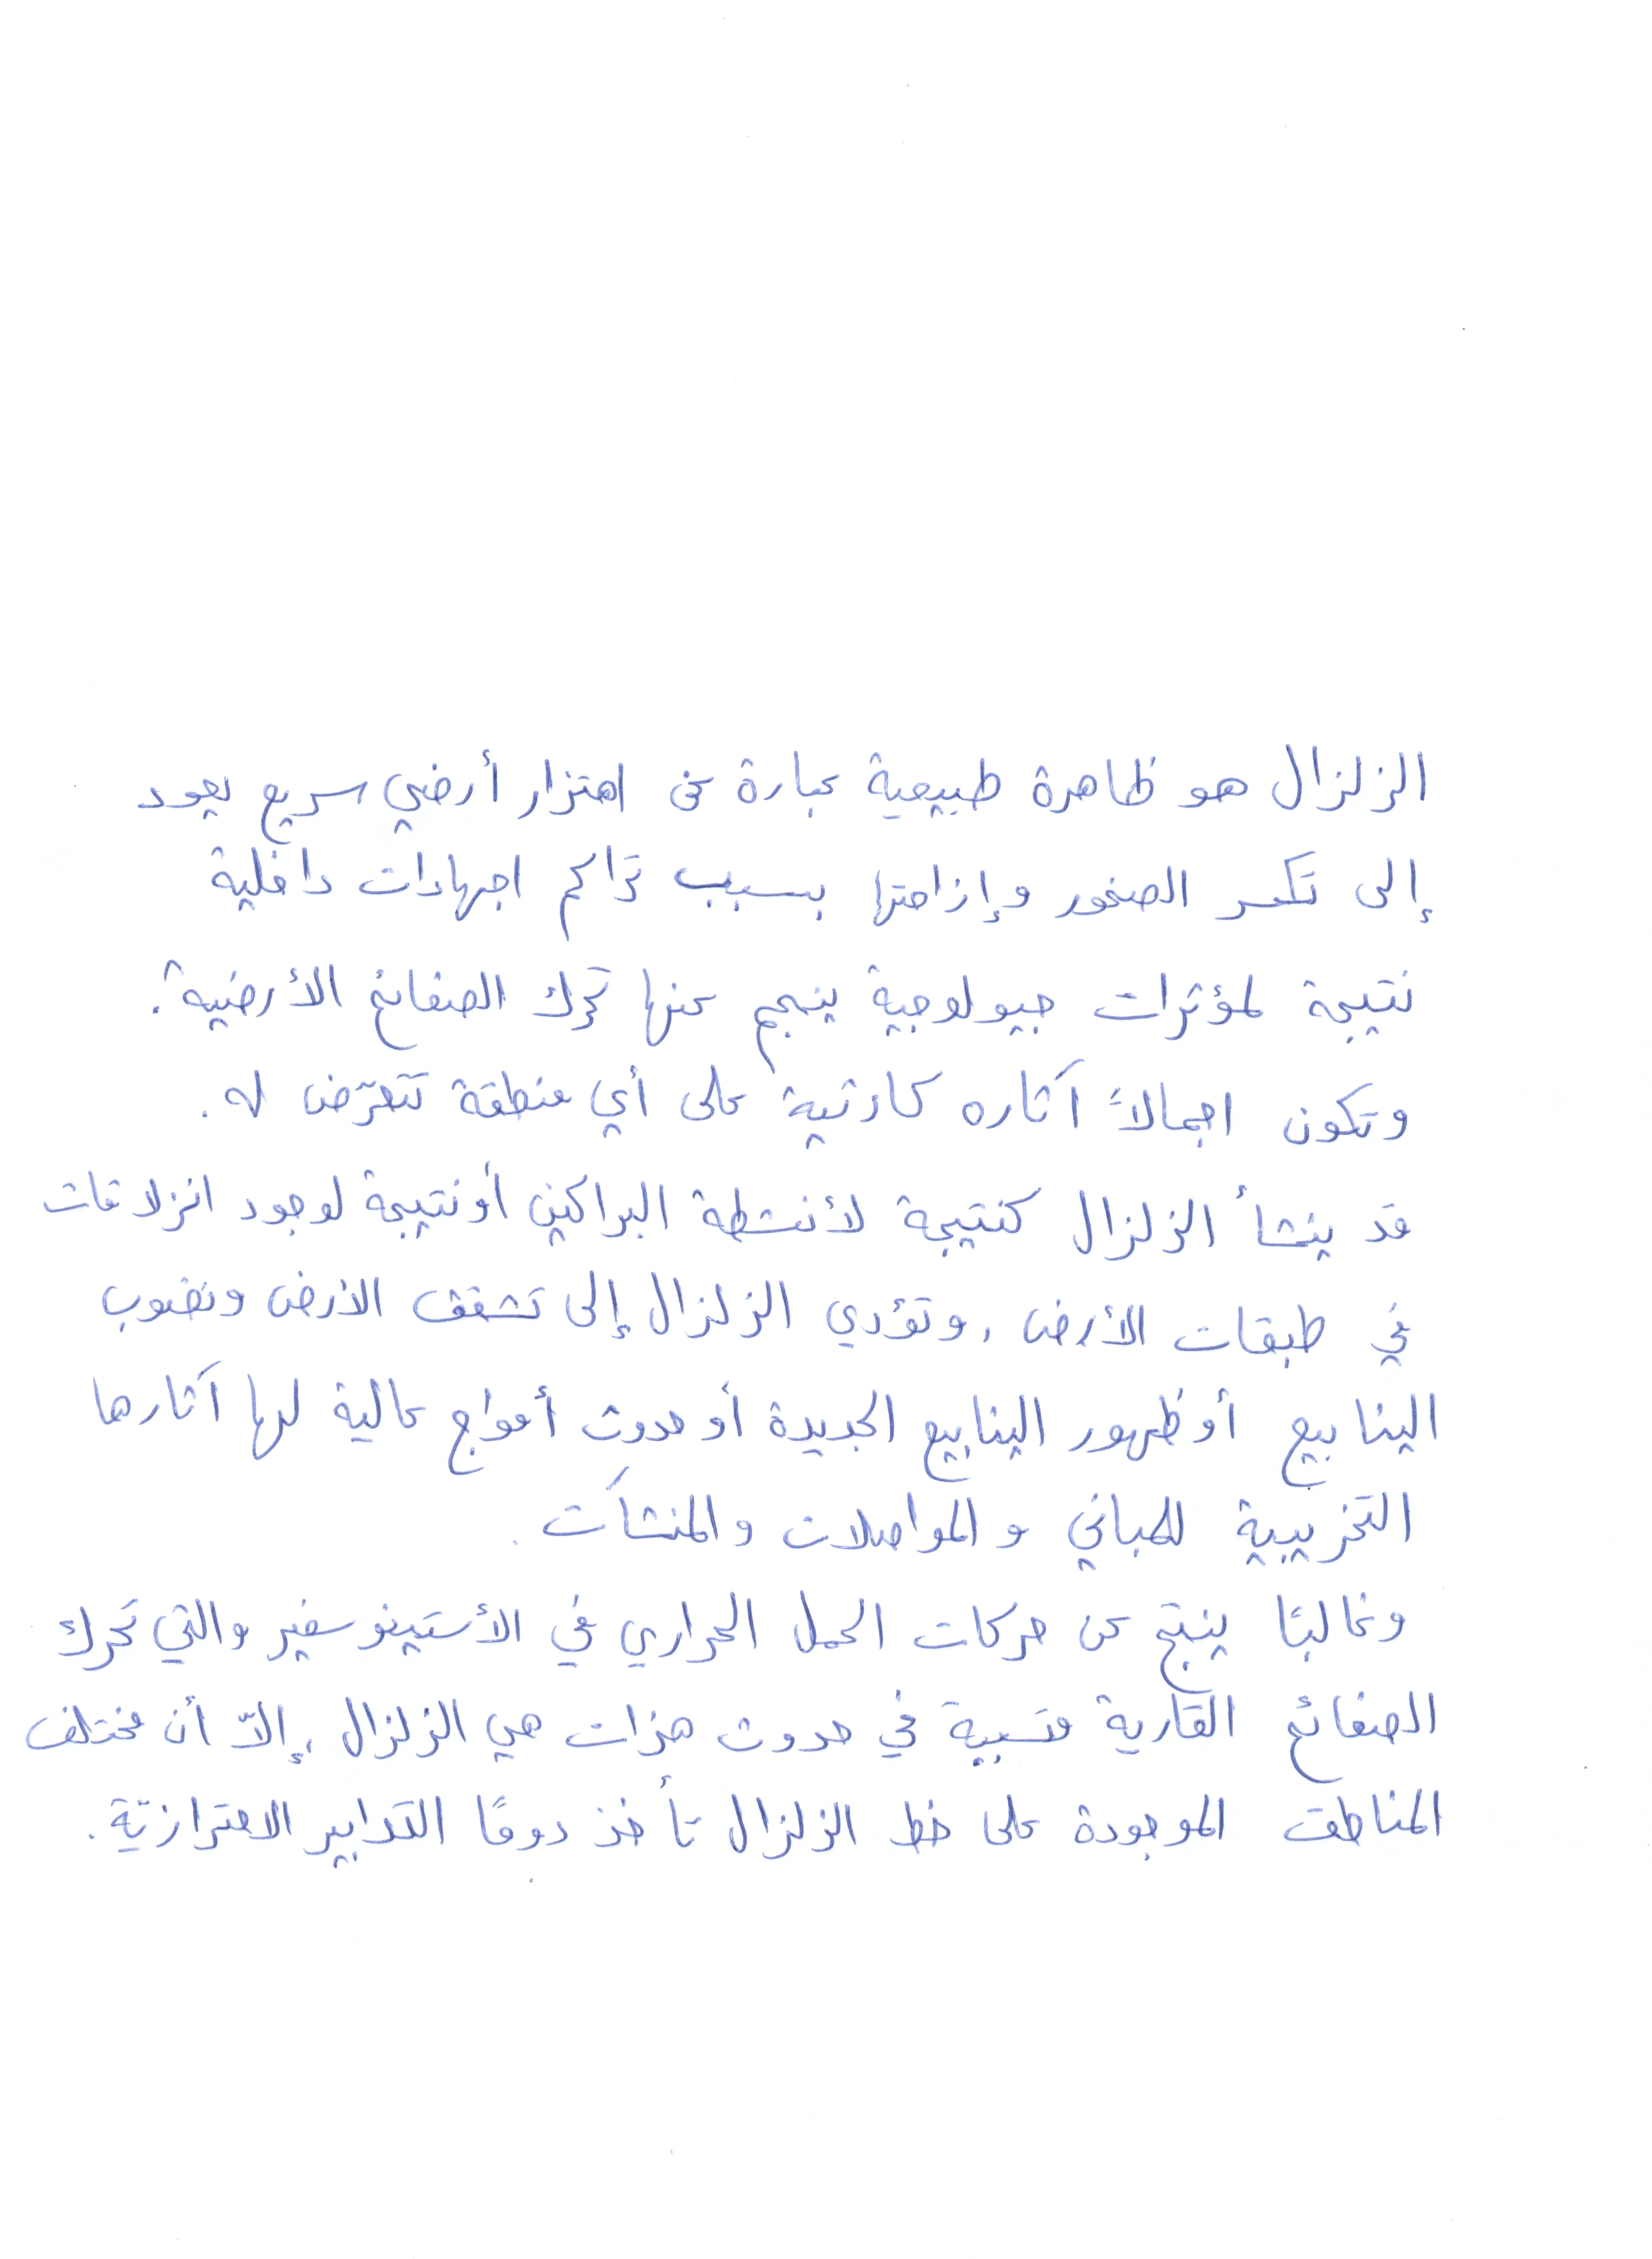 الزلزال هو ظاهرة طبيعية عبارة عن اهتزار أرضي سريع يعود
إلى تكسر الصخور وإزاحتها بسبب تراكم اجهادات داخلية
نتيجة لمؤثرات جيولوجية ينجم عنها تحرك الصفائح الأرضية.
وتكون اجمالاً آثاره كارثية على أي منطقة تتعرّض له.
قد ينشأ الزلزال كنتيجة لأنشطة البراكين أو نتيجة لوجود انزلاقات
في طبقات الأرض. وتؤدي الزلزال إلى تشقق الأرض ونضوب
الينابيع أو ظهور الينابيع الجديدة أو حدوث أمواج عالية لها آثارها
التخريبية للمباني و المواصلات والمنشآت.
وغالبًا ينتج عن حركات الحمل الحراري في الأستينوسفير والتي تحرك
الصفائح القارية متسببة في حدوث هزات هي الزلزال. إلاّ أن مختلف
المناطق الموجودة على خط الزلزال تأخذ دومًا التدابير الاحترازيّة.